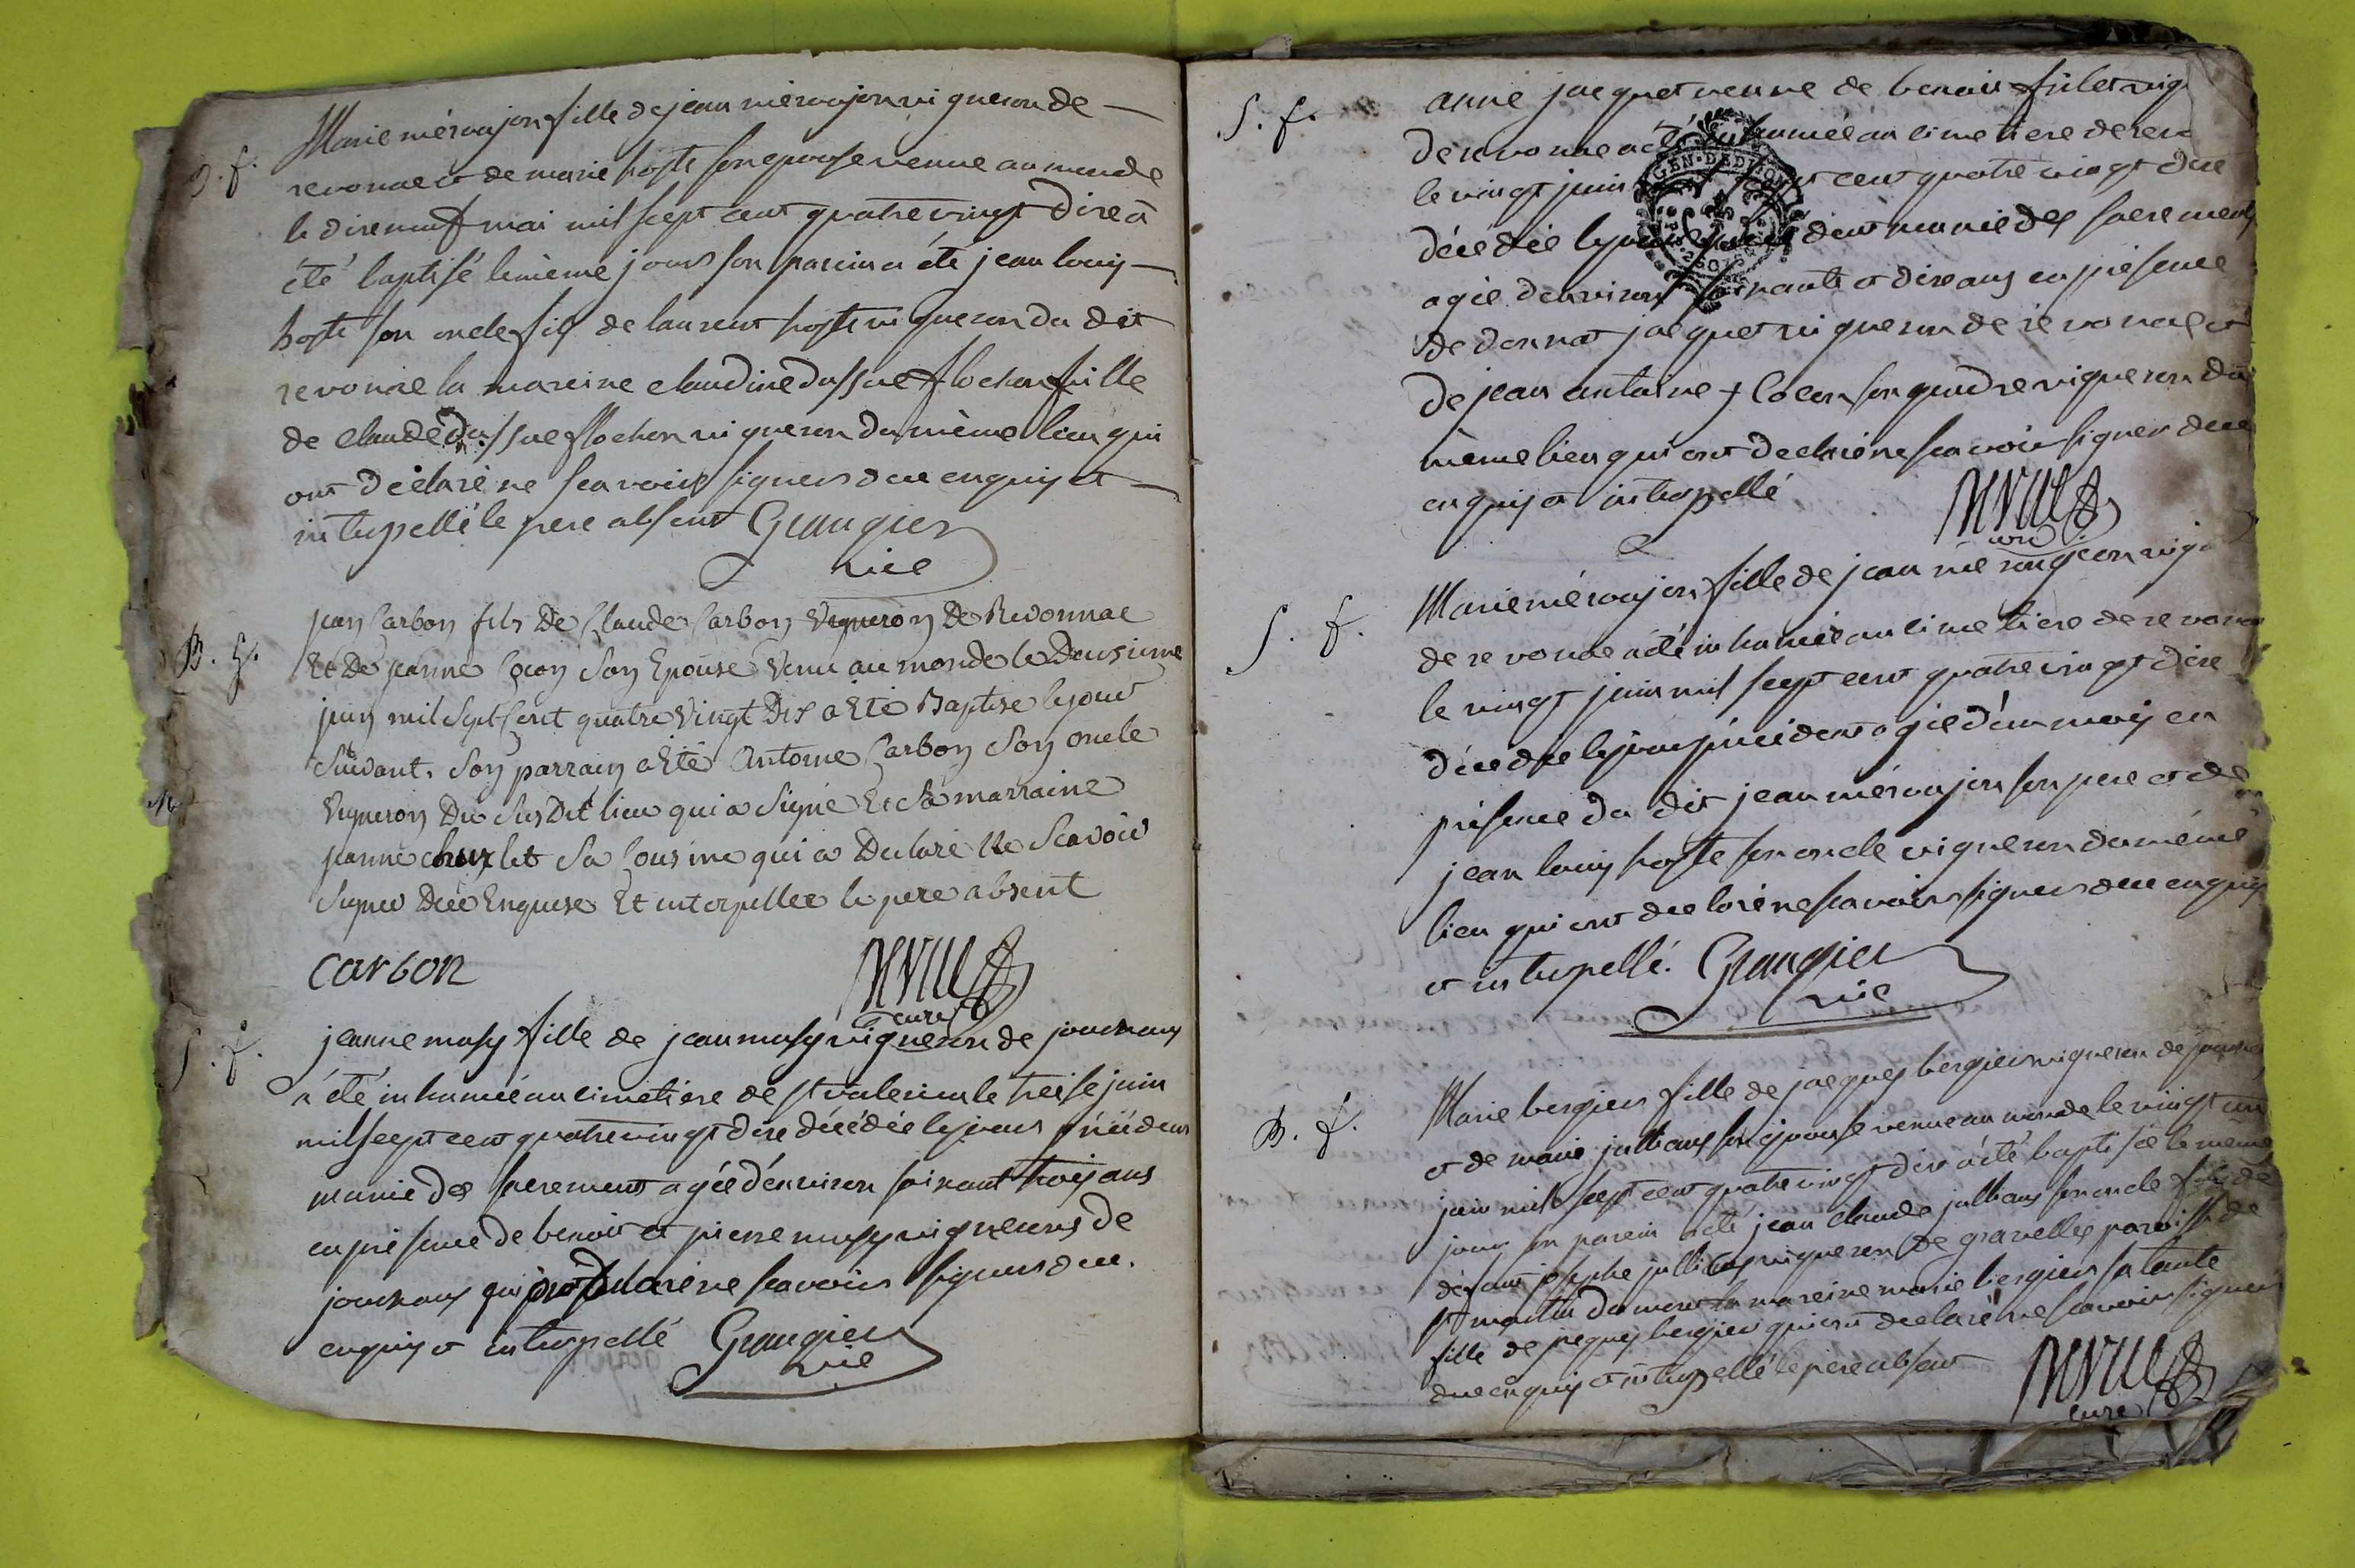 B. f.
Marie méroujon fille de jean méroujon vigneron de
revonnas et de marie hoste son epouse venue au monde
le dixneuf mai mil sept cent quatre vingt dix a
été baptisé le même jour son parein a été jean louis
hoste son oncle fils de laurent hoste vigneron du dit
revonas la mareine claudine flochon fille
de claude flochon vigneron du même lieu qui
ont déclaré ne scavoir signer de ce enquis et
interpellé le pere absent Grangier
vic
B. g.
jean Carbon fils De Claude Carbon Vigneron De Revonnas
Et De jeanne Cocon Son Epouse Venu au monde le Deusieme
juin mil Sept Cent quatre Vingt Dix a Eté Baptise le jour
Suivant. Son parrain a Eté Antoine Carbon Son oncle
Vigneron Du Sus Dit lieu qui a Signé Et Sa marraine
jeanne Sa Cousine qui a Declaré Ne Scavoir
Signer De ce Enquise Et interpellee le pere absent
carbon
curé
S. f.
jeanne musy fille de jean musy vigneron de journans
a été inhumée au cimetière de st valerin le treise juin
mil sept cent quatre vingt dix décédée le jour précédent
munie des sacrements agée d'environ soixant trois ans
en présence de benoit et pierre musy vignerons de
journans qui ont déclaré ne scavoir signer de ce
enquis et interpellé Grangier
vic
S. f.
anne jacquet veuve de benoit vig
de revonnas a été inhumée au cimetiere de revo
le vingt juin sept cent quatre vingt dix
décédée le jour précédent munie des sacrements
agée denviron soixante et dix ans en présence
de donnat jacquet vigneron de revonnas et
de jean antoine Cocon son gendre vigneron du
même lieu qui ont declaré ne scavoir signer de ce
enquis et interpellé
curé
S. f.
Marie méroujon fille de jean méroujeon vig
de revonas a été inhumée au cimetiere de revona
le vingt juin mil sept cent quatre vingt dix
décédée le jour précédent agée d'un mois en
présence du dit jean méroujon son pere et de
jean louis hoste son oncle vigneron du même
lieu qui ont declaré ne scavoir signer de ce enquis
et interpellé. Grangier
vic
B. f.
Marie bergier fille de jacques bergier vigneron de journans
et de marie jullians son epouse venue au monde le vingt un
juin mil sept cent quatre vingt dix a été baptisée le même
jour son parein a été jean claude jullians son oncle fils de
défunt josephe jullians vigneron de gravelles paroisse de
st martin du mont la mareine marie bergier sa tante
fille de jacques bergier qui ont declaré ne scavoir signer
de ce enquis et interpellé le pere absent
curé